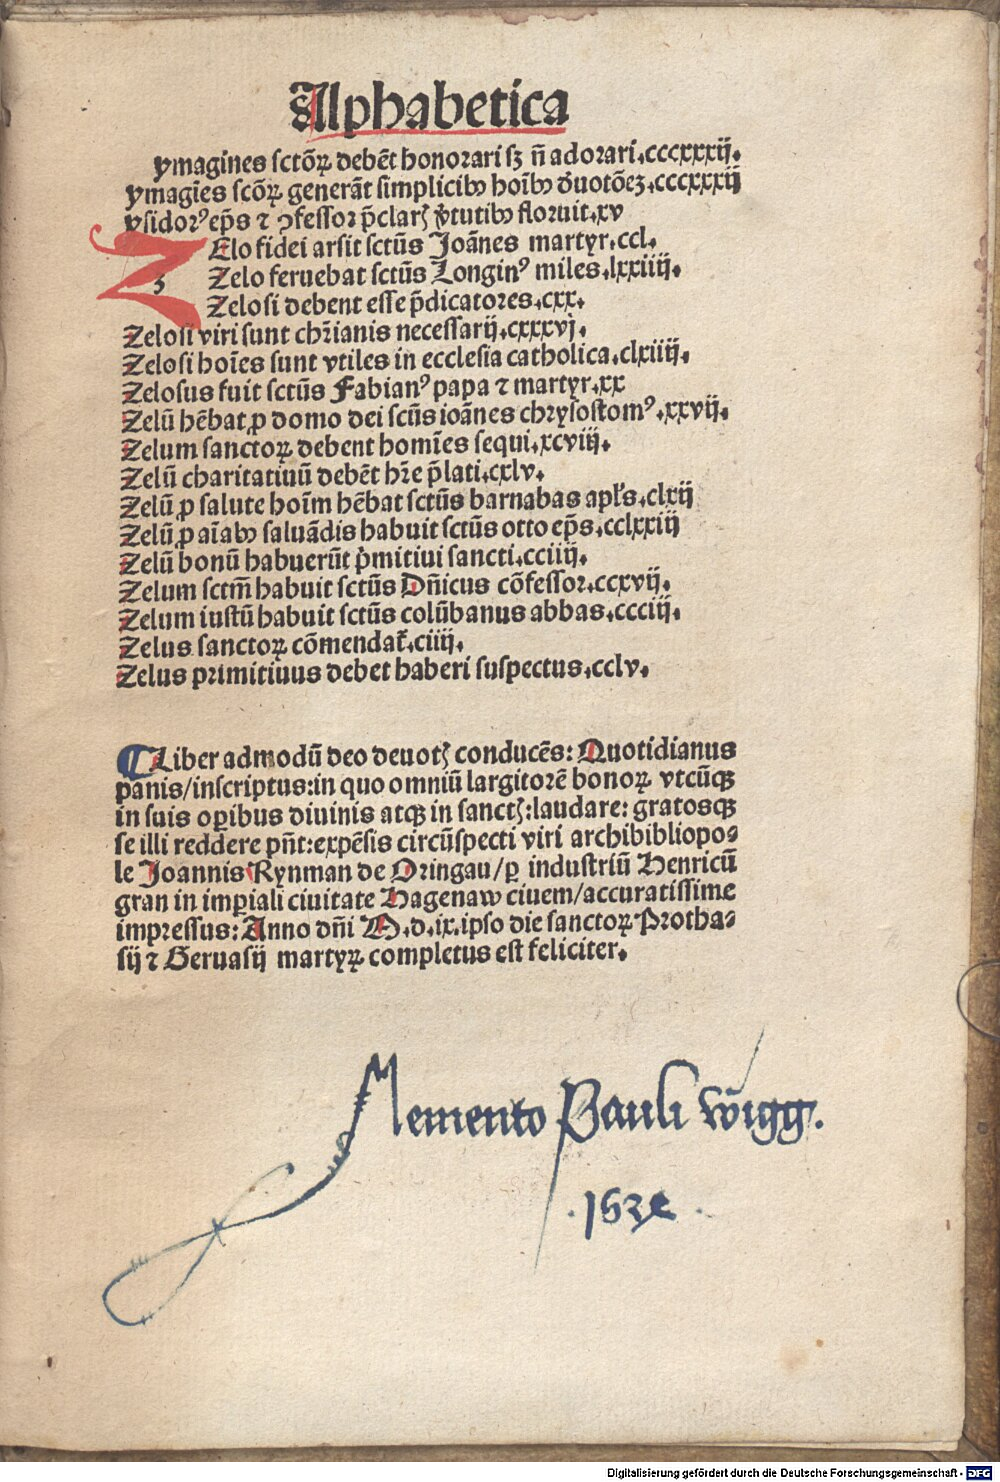 Alphabetica
ymagines sctōꝝ debēt honorari sꝫ ñ adorari.cccxxxij.
ymagīes scōꝝ generāt simplicibꝰ hoībꝰ ð̓uotōeꝫ.cccxxxij
ysidorꝰ ep̄s ⁊ ꝯfessor p̄clarꝭ v̓tutibꝰ floruit.xv
ZElo fidei arsit sctūs Joānes martyr.ccl.
Zelo feruebat sctūs Longinꝰ miles.lxxiiij.
Zelosi debent esse p̄dicatores.cxx.
Zelosi viri sunt chr̄ianis necessarij.cxxxvj.
Zelosi hoīes sunt vtiles in ecclesia catholica.clxiiij.
Zelosus fuit sctūs Fabianꝰ papa ⁊ martyr.xx
Zelū hēbat ꝓ domo dei scūs ioānes chrysostomꝰ.xxvij.
Zelum sanctoꝝ debent homīes sequi.xcviij.
Zelū charitatiuū debēt hr̄e p̄lati.cxlv.
Zelū ꝓ salute hoīm hēbat sctūs barnabas apl̓s.clxij
Zelū ꝓ aīabꝰ saluādis habuit sctūs otto ep̄s.cclxxiij
Zelū bonū habuerūt p̓mitiui sancti.cciiij.
Zelum sctm̄ habuit sctūs Dn̄icus cōfessor.ccxvij.
Zelum iustū habuit sctūs colūbanus abbas.ccciij.
Zelus sanctoꝝ cōmendat̄.ciiij.
Zelus primitiuus debet haberi suspectus.cclv.
¶Liber admodū deo deuotꝭ conducēs: Quotidianus
panis/inscriptus:in quo omniū largitorē bonoꝝ vtcūqꝫ
in suis oꝑibus diuinis atqꝫ in sanctꝭ:laudare: gratosqꝫ
se illi reddere pn̄t:expēsis circūspecti viri archibibliopo⸗
le Joannis Rynman de Oringau/ꝑ industriū Henricū
gran in imꝑiali ciuitate Hagenaw ciuem/accuratissime
impressus: Anno dn̄i M.d.ix.ipso die sanctoꝝ Protha⸗
sij ⁊ Geruasij martyꝝ completus est feliciter.
Memento Pauli wigg.
Digitalisierung gefördert durch die Deutsche Forschungsgemeinschaft - DFG